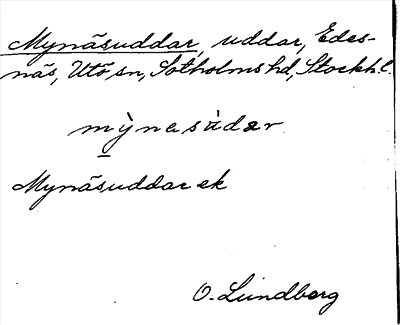 Mynäsuddar, uddar, Edes-
näs, Utö, sn, Sotholms hd, Stockh. l.
mỳnesùdar
Mynäsuddar ek
O. Lundberg